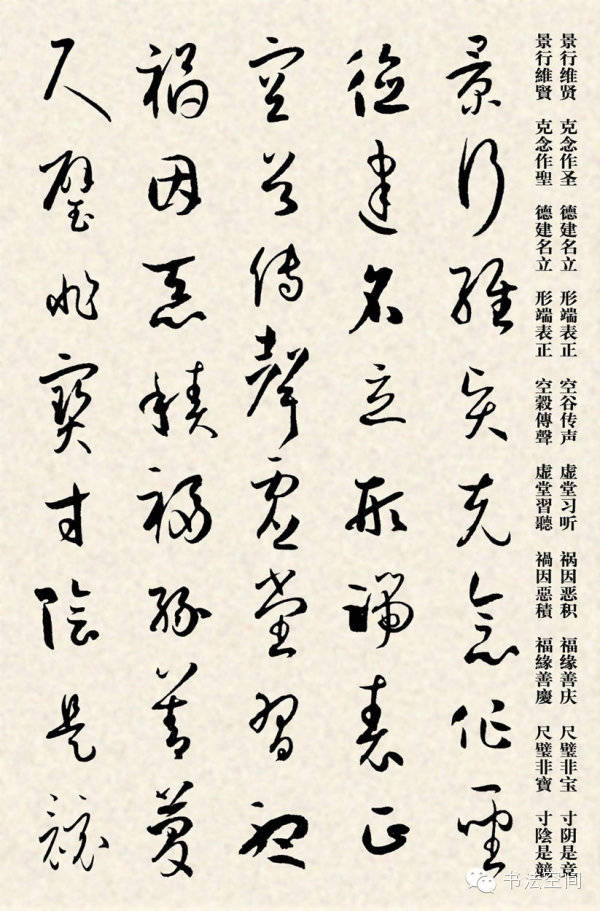 景行维贤 克念作圣 德建名立 形端表正 空谷传声 虚堂习听 祸因恶积 福缘善庆 尺璧非宝 寸阴是竞
景行維賢 克念作聖 德建名立 形端表正 空穀傳聲 虛堂習聽 禍因惡積 福緣善慶 尺璧非寶 寸陰是競
景行維賢克念作聖
德建名立形端表正
空谷傳聲虛堂習聽
禍因惡積福緣善慶
尺璧非寶寸陰是競
书法空间